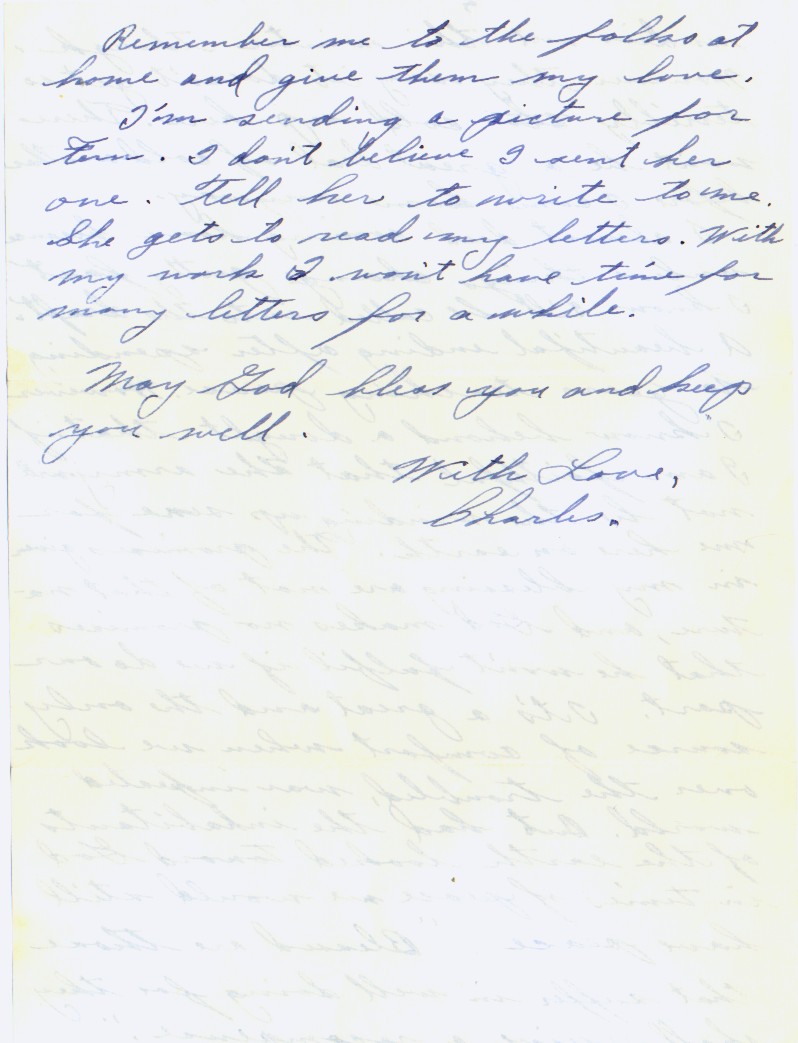 Remember me to the folks at
home and give them my love.
I'm sending a picture for
Fern. I don't believe I sent her
one. Tell her to write to me.
She gets to read my letters. With
my work I won't have time for
many letters for a while.
May God bless you and keep
you well.
With Love,
Charles.